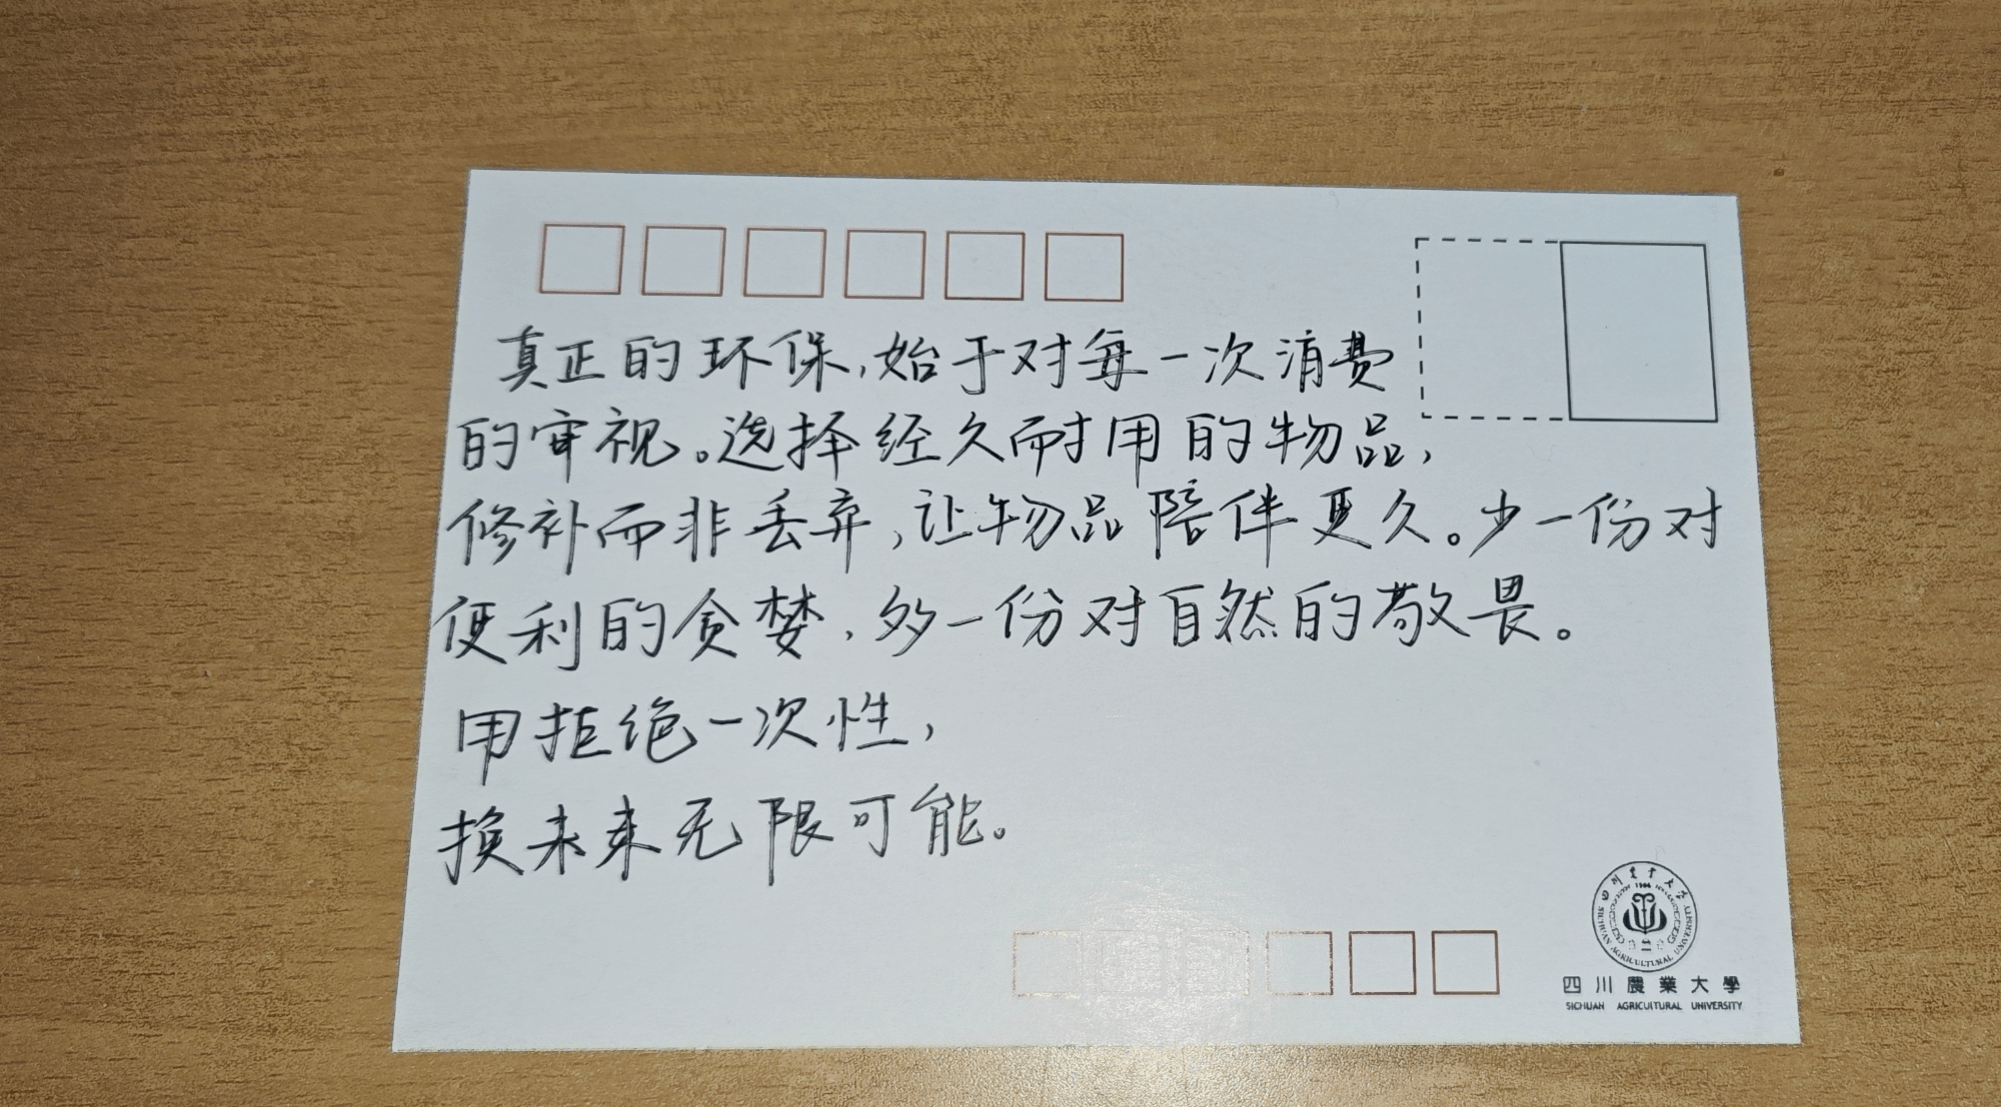 真正的环保,始于对每一次消费
的审视。选择经久耐用的物品,
修补而非丢弃,让物品陪伴更久。少一份对
便利的贪婪,多一份对自然的敬畏。
用拒绝一次性,
换未来无限可能。
四川農業大学
1906
SICHUAN AGRICULTURAL UNIVERSITY
四川農業大學
SICHUAN AGRICULTURAL UNIVERSITY